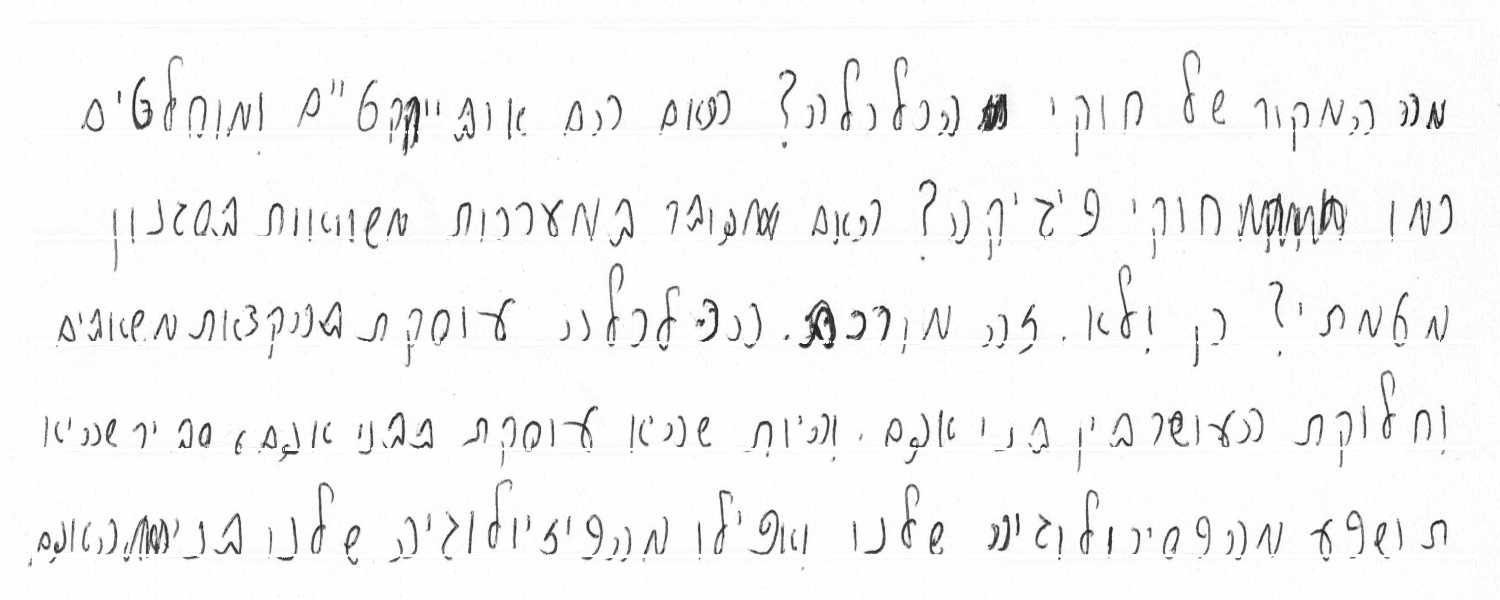 מה המקור של חוקי הכלכלה? האם הם אובייקט"ם ומוחלטים
כמו חוקי פיזיקה? האם מדובר במערכות משוואות בסגנון
מטמתי? כן ולא. זה מורכב. הכלכלה עוסקת בהקצאת משאבים
וחלוקת העושר בין בני אדם. והיות שהיא עוסקת בבני אדם, סביר שהיא
תושפע מהפסיכולוגיה שלנו ואפילו מהפיזיולוגיה שלנו בני האדם